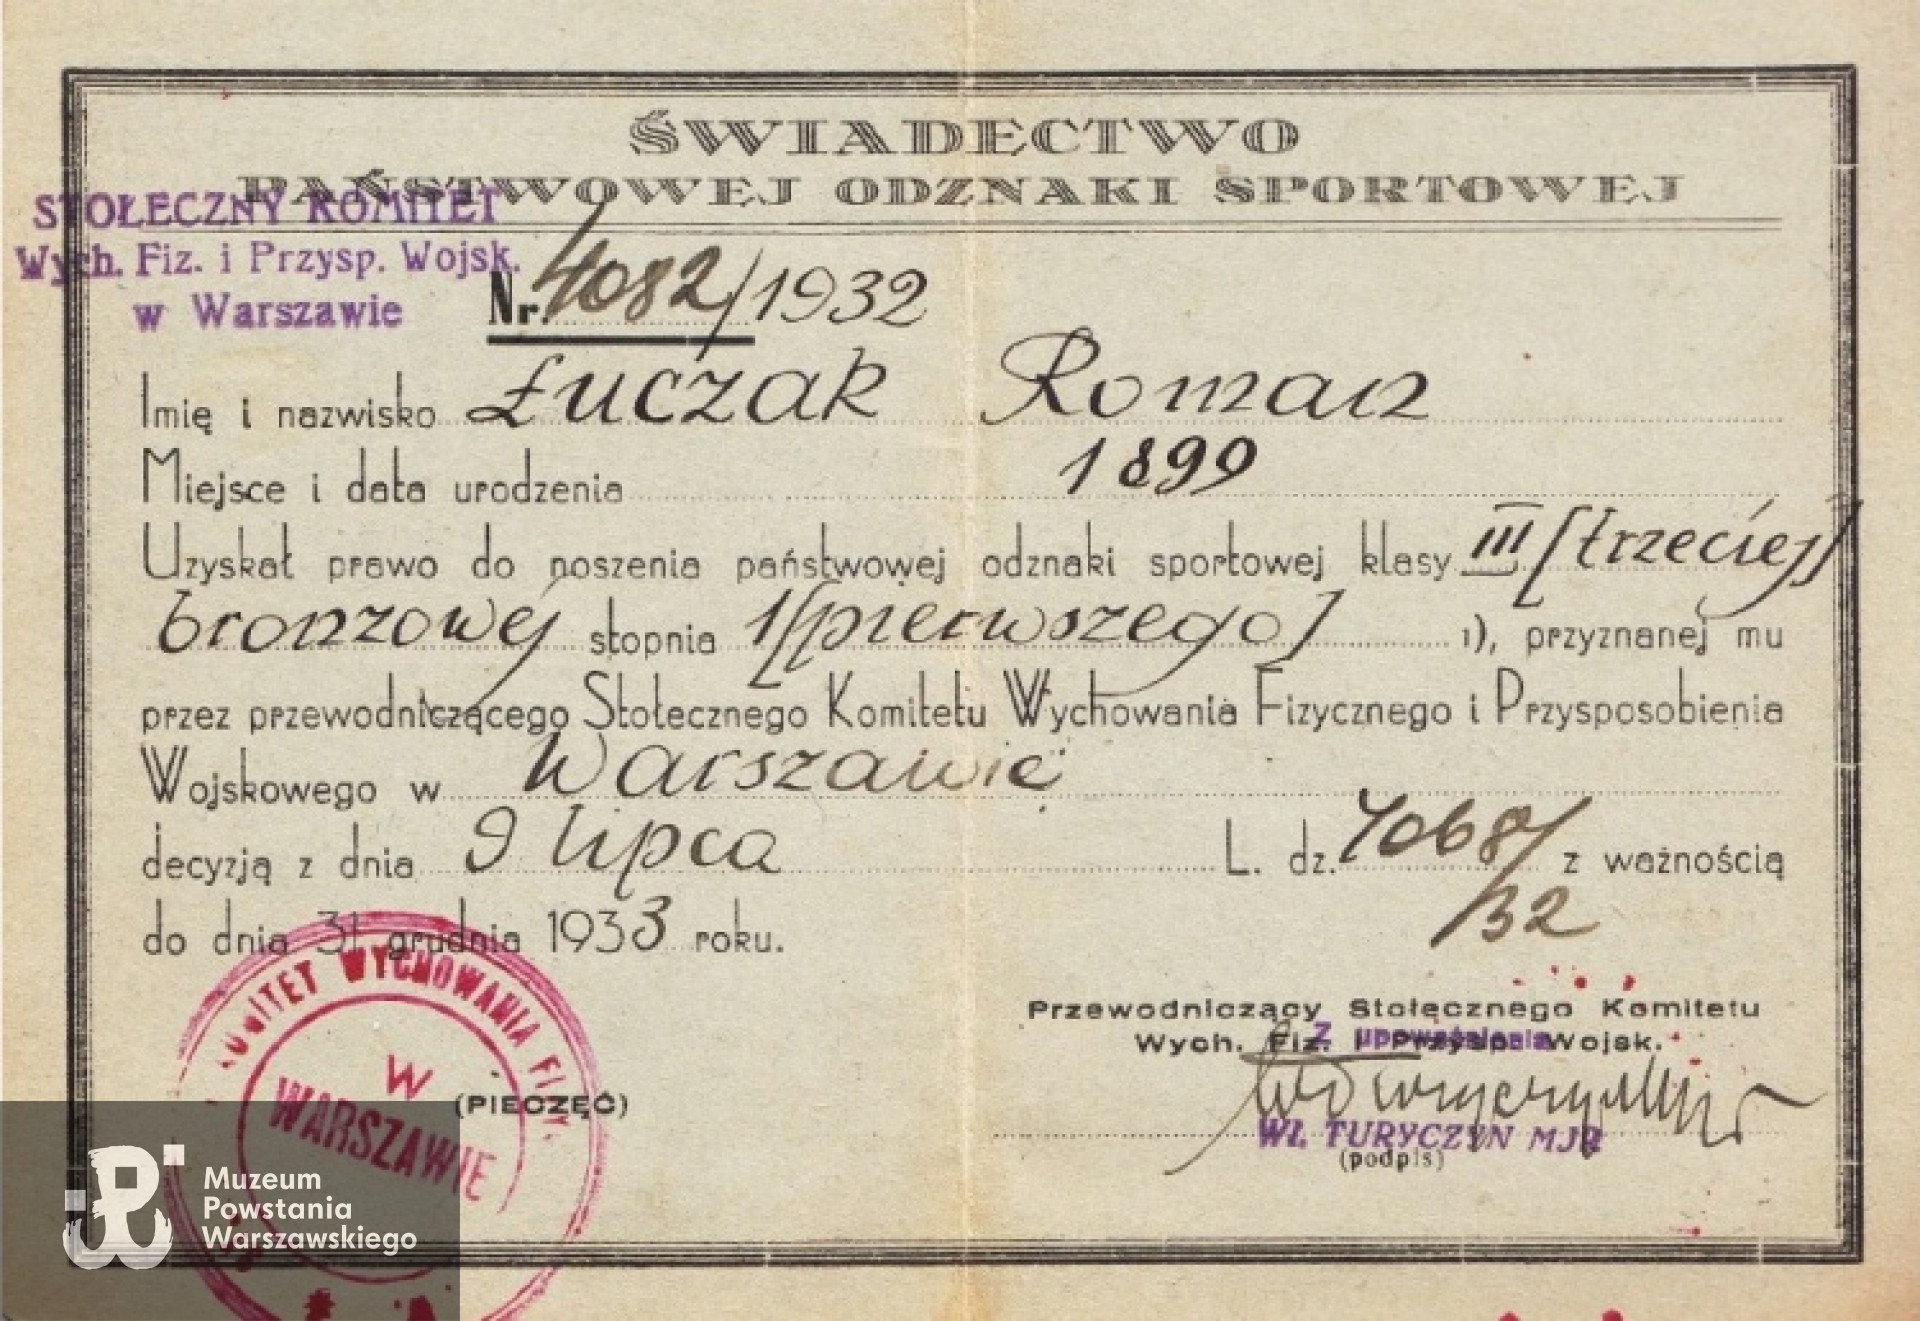 ŚWIADECTWO
PAŃSTWOWEJ ODZNAKI SPORTOWEJ
STOŁECZNY KOMITET
Wych. Fiz. i Przysp. Wojsk.
w Warszawie
Nr. 4082/1932
Imię i nazwisko Łuczak Roman
Miejsce i data urodzenia 1899
Uzyskał prawo do noszenia państwowej odznaki sportowej klasy III [trzeciej]
bronzowej stopnia 1[pierwszego] 1), przyznanej mu
przez przewodniczącego Stołecznego Komitetu Wychowania Fizycznego i Przysposobienia
Wojskowego w Warszawie
decyzją z dnia 9 lipca L. dz. 4068/32 z ważnością
do dnia 31 grudnia 1933 roku.
KOMITET WYCHOWANIA FIZ.
W
WARSZAWIE
(PIECZĘĆ)
Przewodniczący Stołecznego Komitetu
Wych. Fiz. i Przysp. Wojsk.
Z upoważnienia
WŁ. TURYCZYN MJR
(podpis)
Muzeum
Powstania
Warszawskiego